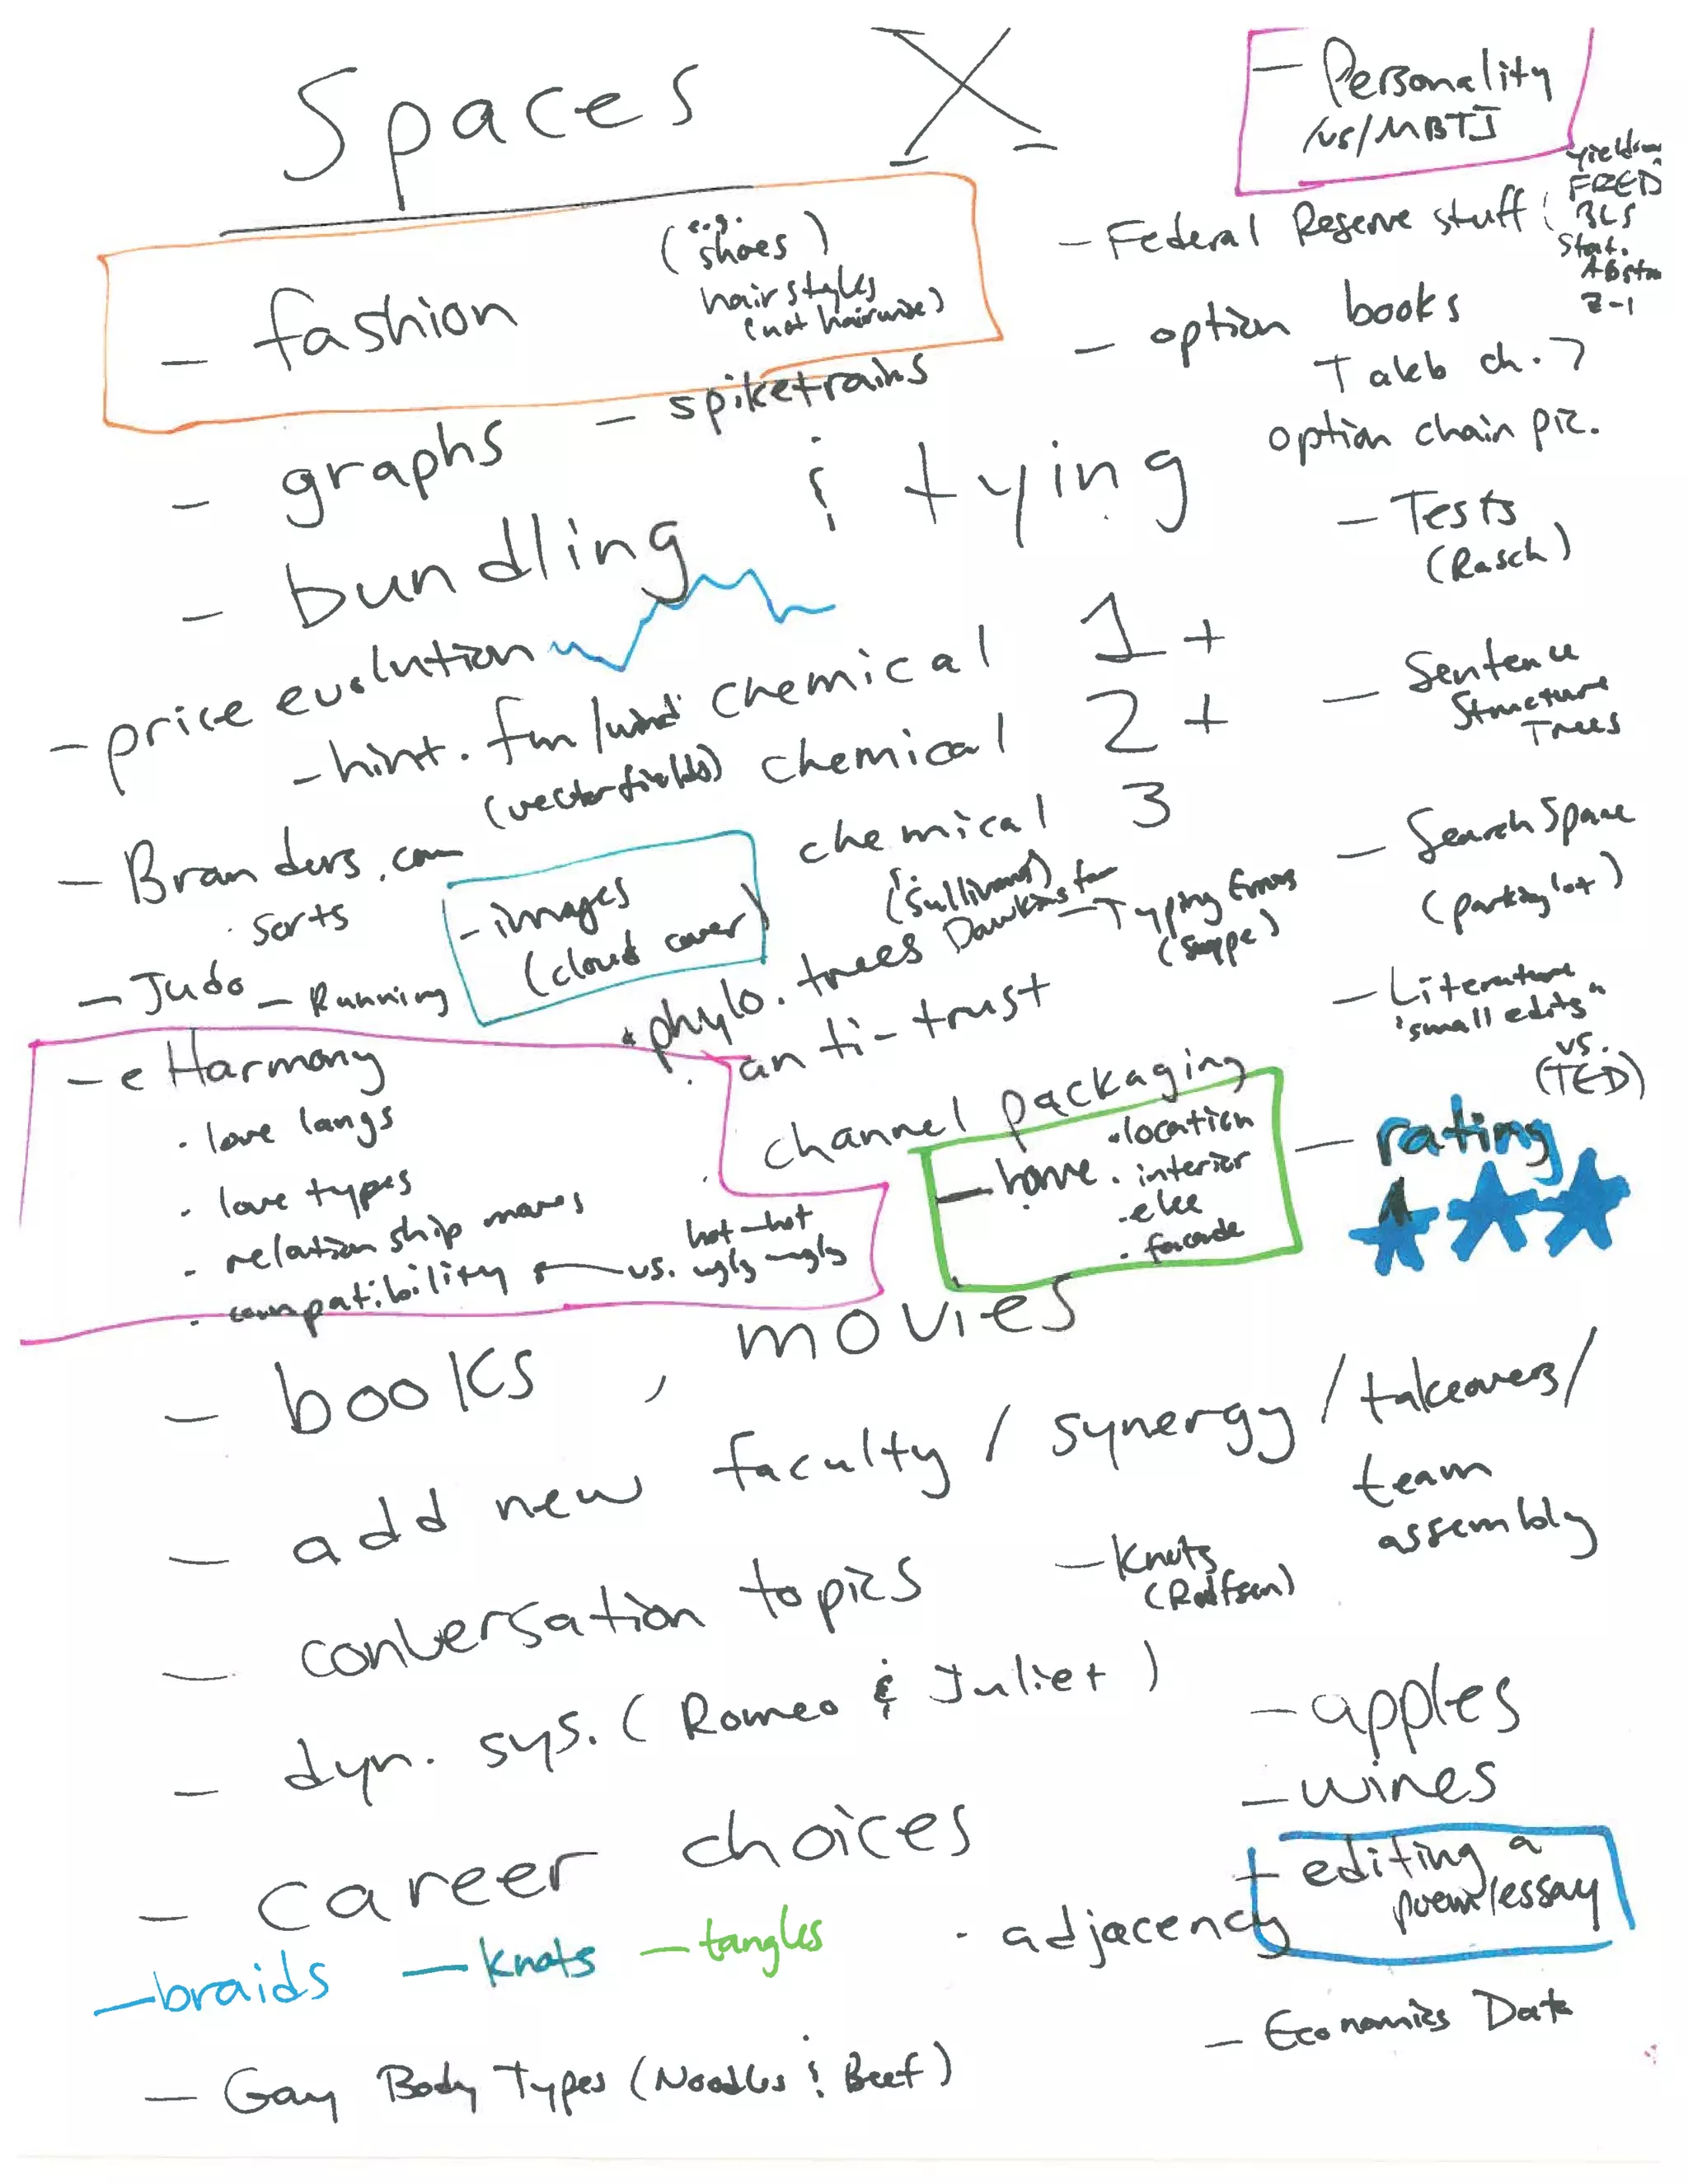 Spaces X
- Personality
/vs/MBTI
- Federal Reserve stuff (
FRED
BLS
Stat.
Z-1
- fashion
(e.g. shoes)
hairstyles
- option books
Taleb ch. 7
option chain pic.
- spiketrains
- graphs
- bundling & tying
- Tests
(Rasch)
- price evolution
- hint. fm/wind
(vectorfields)
chemical 1 +
chemical 2 +
chemical 3
- Sentence
Structure
Trees
- Branders.com
· sorts
- images
(cloud cover)
- Search Space
(parking lot)
- Judo - Running
phylo. trees
- Typing Errors
- Literature
"small edits"
vs.
(TED)
· anti-trust
- eHarmony
· love langs
· love types
· relationship
· compatibility vs. hot-hot
ugly-ugly
· channel packaging
- home · location
· interior
· facade
- rating
- books, movies
- add new faculty / synergy / takeovers /
team
assembly
- conversation topics
- Knots
- dyn. sys. (Romeo & Juliet)
- apples
- wines
- career choices
- editing a
poem/essay
- braids - knots - tangles
· adjacency
- Economics Data
- Gay Body Types (Noodles & Beef)